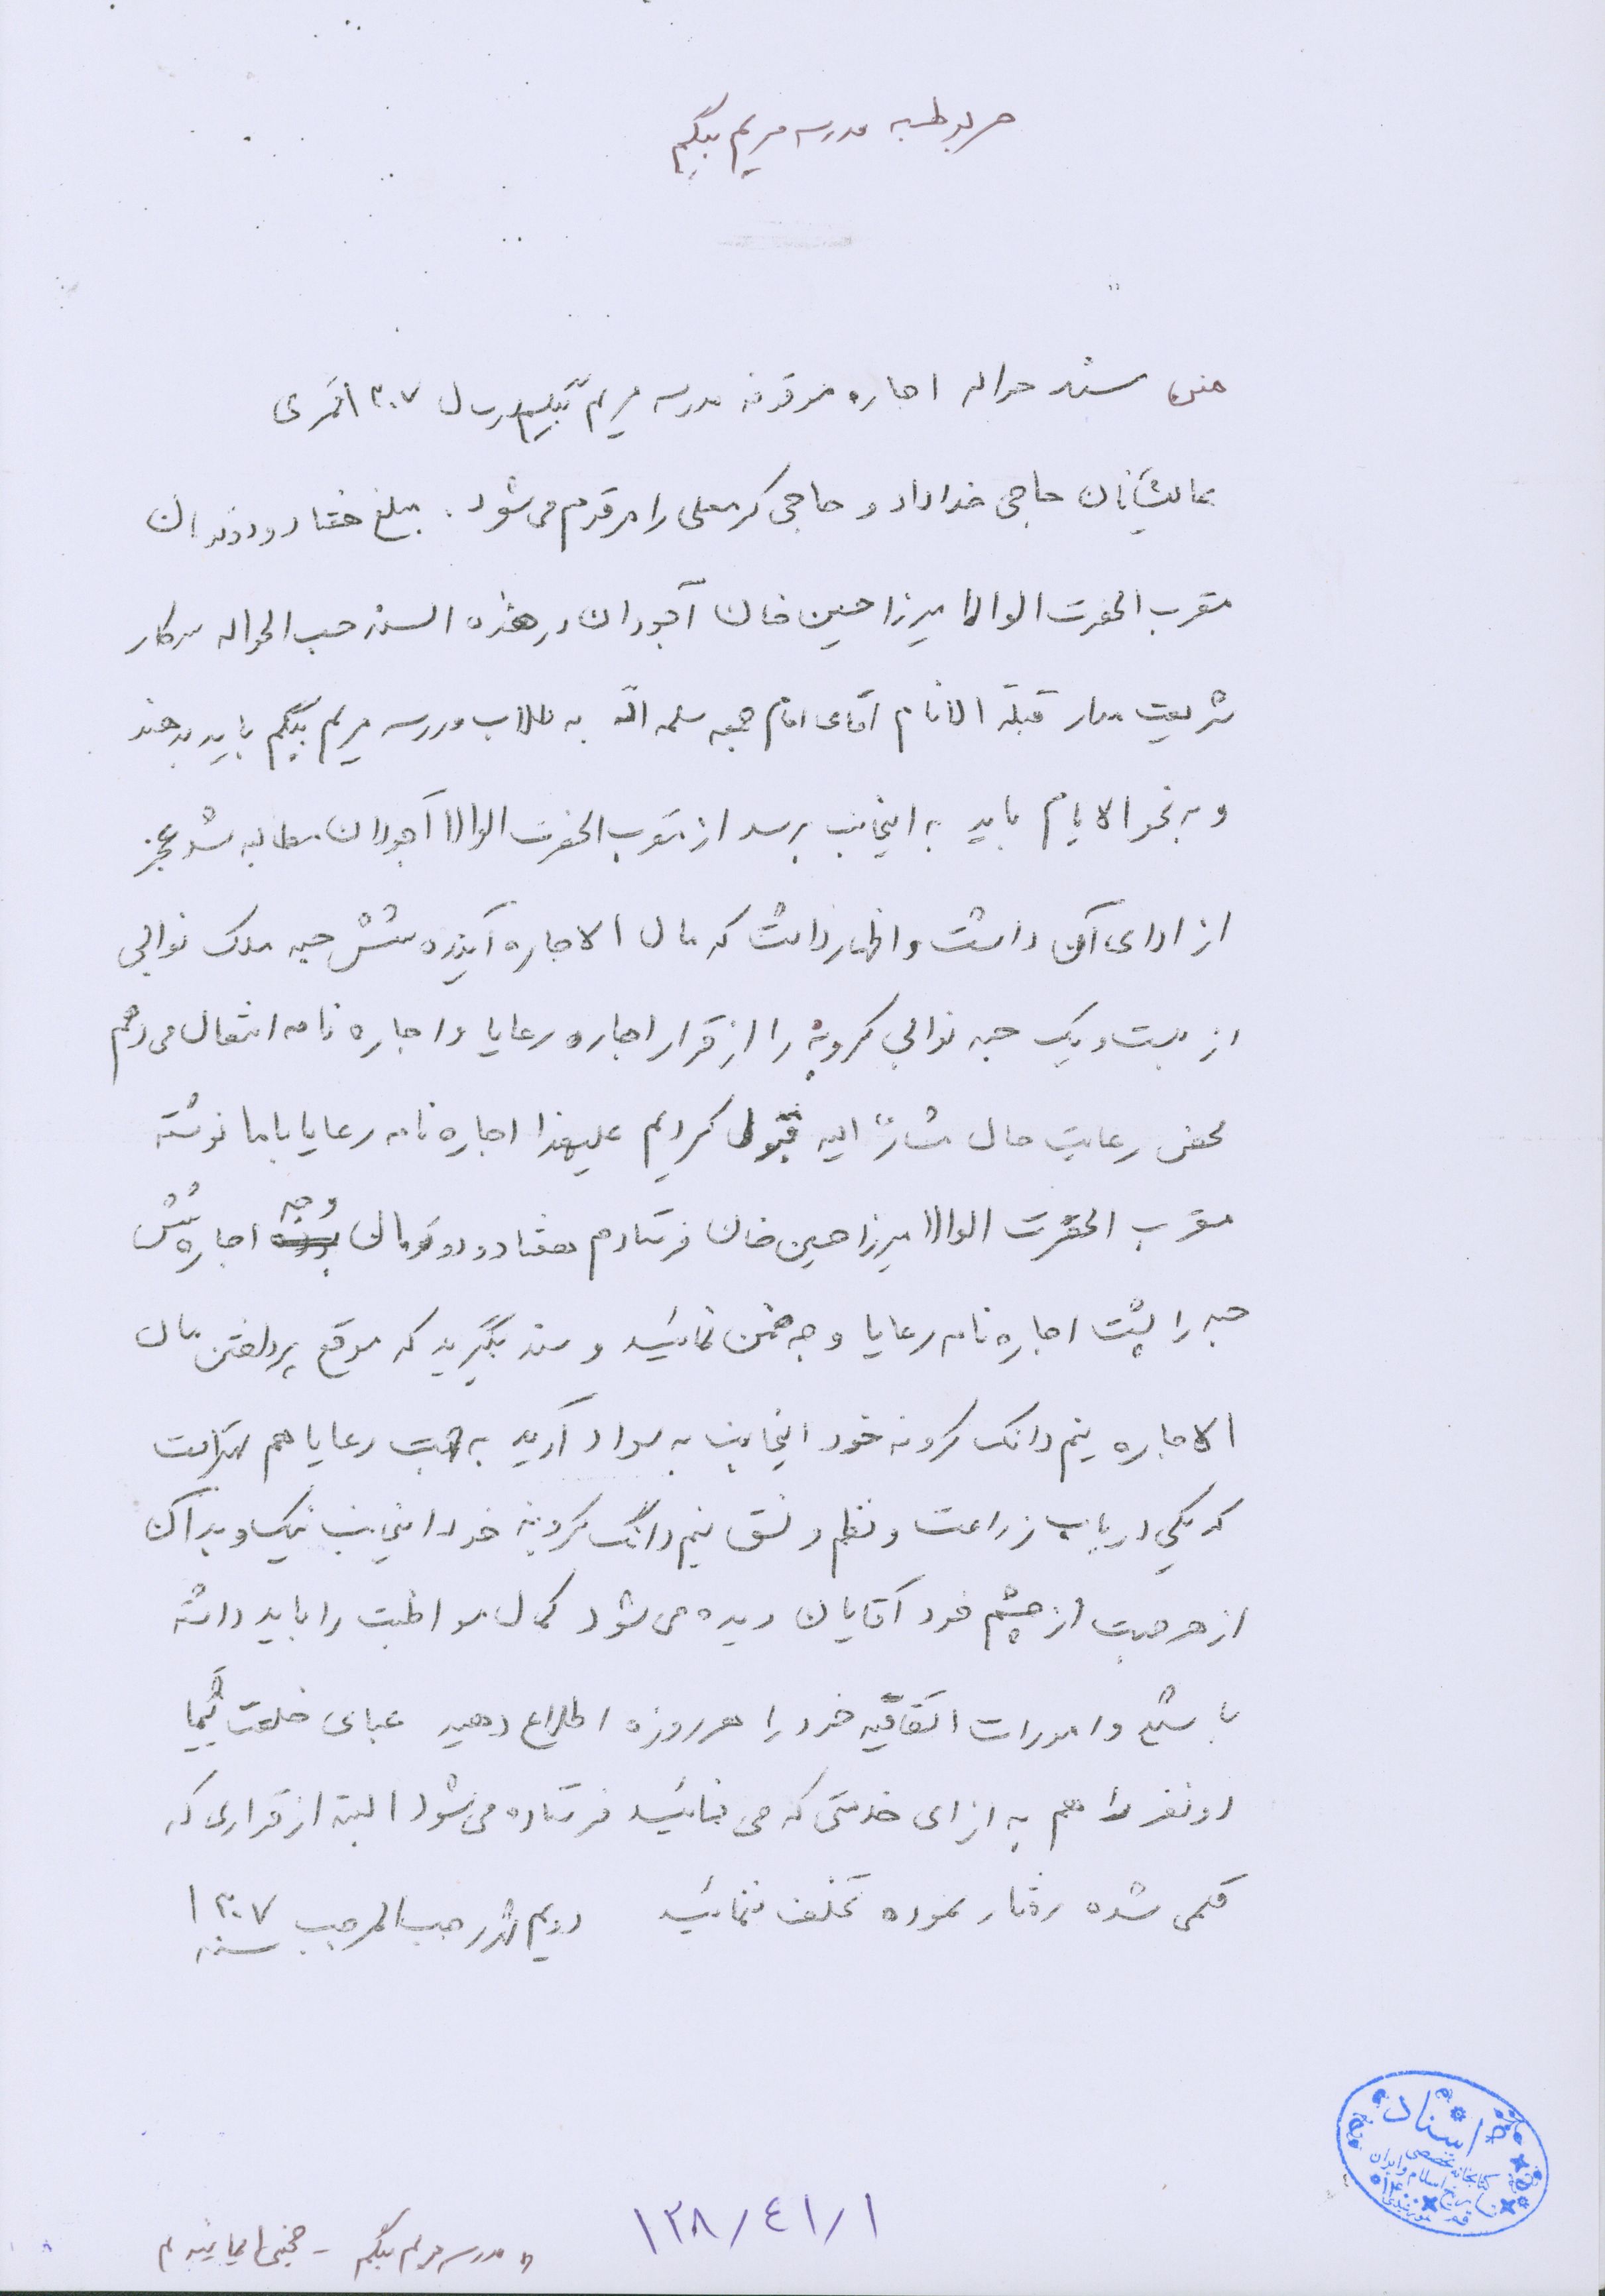 مربوط به مدرسه مریم بیگم
متن سند حواله اجاره موقوفه مدرسه مریم بیگم در سال ۱۳۰۷ قمری
عالیشأنان حاجی خداداد و حاجی کرمعلی را مرقوم می‌شود. مبلغ هفتاد و دو تومان
مقرب الحضرت الوالا میرزا حسین خان آجودان در هذه السنه حسب الحواله سرکار
شریعتمدار قبلة الانام آقای امام جمعه سلمه الله به طلاب مدرسه مریم بیگم باید بدهند
و به نحو الایام باید به اینجانب برسد از مقرب الحضرت الوالا آجودان مطالبه شد عجز
از ادای آن داشت و اظهار داشت که مال الاجاره آینده شش حبه ملک نوالی
از بیست و یک حبه نوالی کرونه را از قرار اجاره رعایا و اجاره نامه انتقال می‌دهم
محض رعایت حال مشارٌ الیه قبول کردیم علیهذا اجاره نامه رعایا با ما نوشته
مقرب الحضرت الوالا میرزا حسین خان فرستادم هفتاد و دو تومان وجه اجاره شش
حبه را پشت اجاره نامه رعایا وجه ضمن نمائید و سند بگیرید که موقع پرداختن مال
الاجاره نیم دانگ کرونه خود اینجانب به سواد آرید به جهت رعایا هم بهتر است
که یکی در باب زراعت و نظم و نسق نیم دانگ کرونه خود اینجانب نیک و بد آن
از هر جهت از چشم خود آقایان دیده می‌شود کمال مواظبت را باید داشته
باشید و امورات اتفاقیه خود را هر روزه اطلاع دهید عبای خلعت شما
دو نفر را هم به ازای خدمتی که می‌نمائید فرستاده می‌شود البته از قراری که
قلمی شده رفتار نموده تخلف ننمائید دویم شهر رجب المرجب سنه ۱۳۰۷
اسناد
کتابخانه تخصصی
تاریخ اسلام و ایران
قم
۱۲۸/٤۱/۱
مدرسه مریم بیگم -